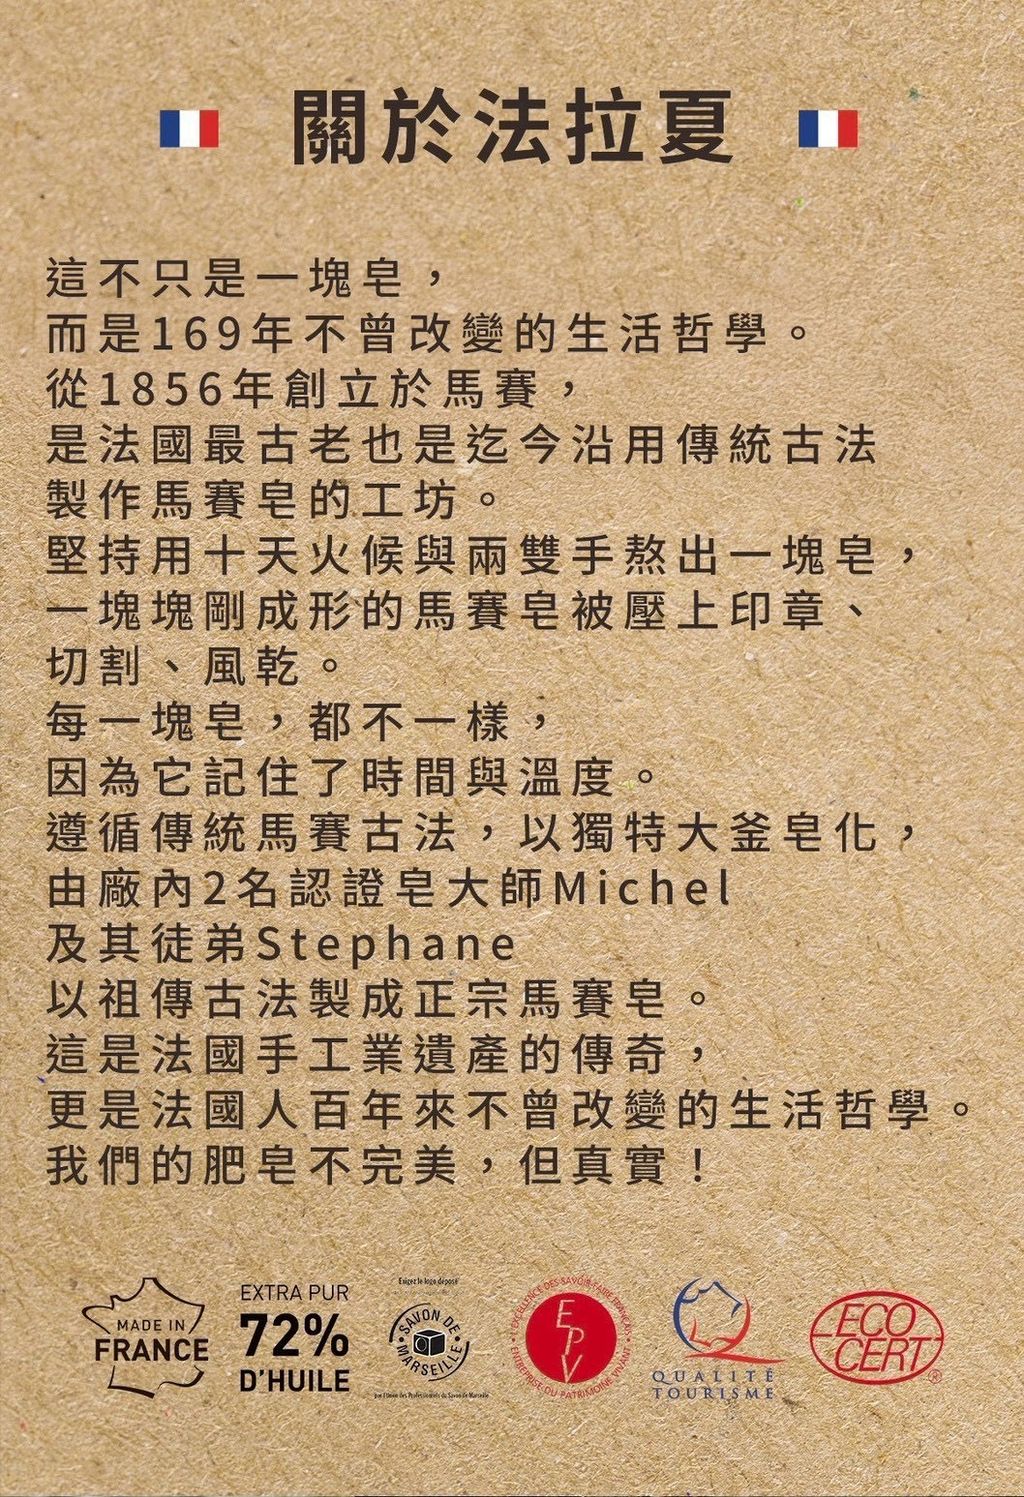 關於法拉夏
這不只是一塊皂，
而是169年不曾改變的生活哲學。
從1856年創立於馬賽，
是法國最古老也是迄今沿用傳統古法
製作馬賽皂的工坊。
堅持用十天火候與兩雙手熬出一塊皂，
一塊塊剛成形的馬賽皂被壓上印章、
切割、風乾。
每一塊皂，都不一樣，
因為它記住了時間與溫度。
遵循傳統馬賽古法，以獨特大釜皂化，
由廠內2名認證皂大師Michel
及其徒弟Stephane
以祖傳古法製成正宗馬賽皂。
這是法國手工業遺產的傳奇，
更是法國人百年來不曾改變的生活哲學。
我們的肥皂不完美，但真實！
MADE IN
FRANCE
EXTRA PUR
72%
D'HUILE
Exigez le logo déposé
SAVON DE
MARSEILLE
par l'Union des Professionnels du Savon de Marseille
L'EXCELLENCE DES SAVOIR-FAIRE FRANÇAIS
EPV
ENTREPRISE DU PATRIMOINE VIVANT
QUALITÉ
TOURISME
ECO
CERT
®